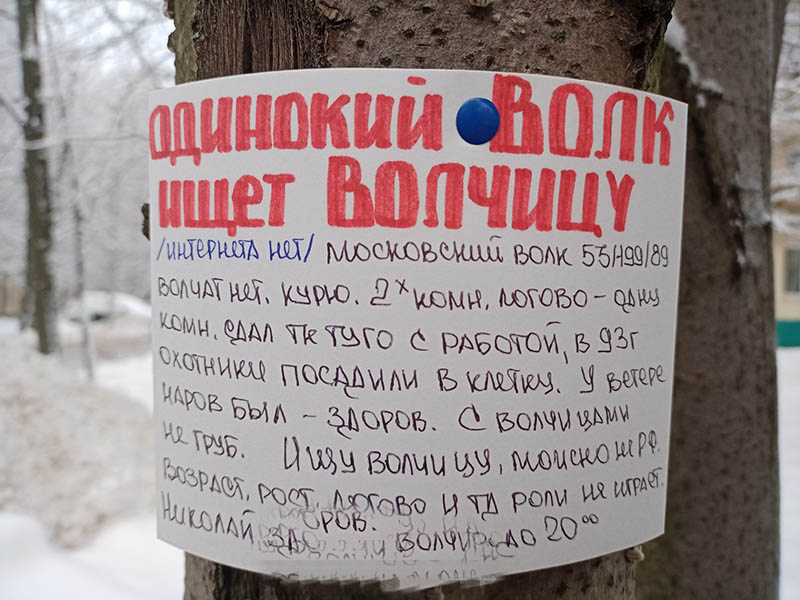 ОДИНОКИЙ ВОЛК
ИЩЕТ ВОЛЧИЦУ
/ИНТЕРНЕТА НЕТ/ МОСКОВСКИЙ ВОЛК 53/199/89
ВОЛЧАТ НЕТ. КУРЮ. 2х КОМН. ЛОГОВО - ОДНУ
КОМН. СДАЛ ТК ТУГО С РАБОТОЙ, В 93г
ОХОТНИКИ ПОСАДИЛИ В КЛЕТКУ. У ВЕТЕРЕ
НАРОВ БЫЛ - ЗДОРОВ. С ВОЛЧИЦАМИ
НЕ ГРУБ. ИЩУ ВОЛЧИЦУ, МОСК ОЖ РФ.
ВОЗРАСТ, РОСТ, ЛОГОВО И ТД РОЛИ НЕ ИГРАЕТ.
НИКОЛАЙ ДО 20 00